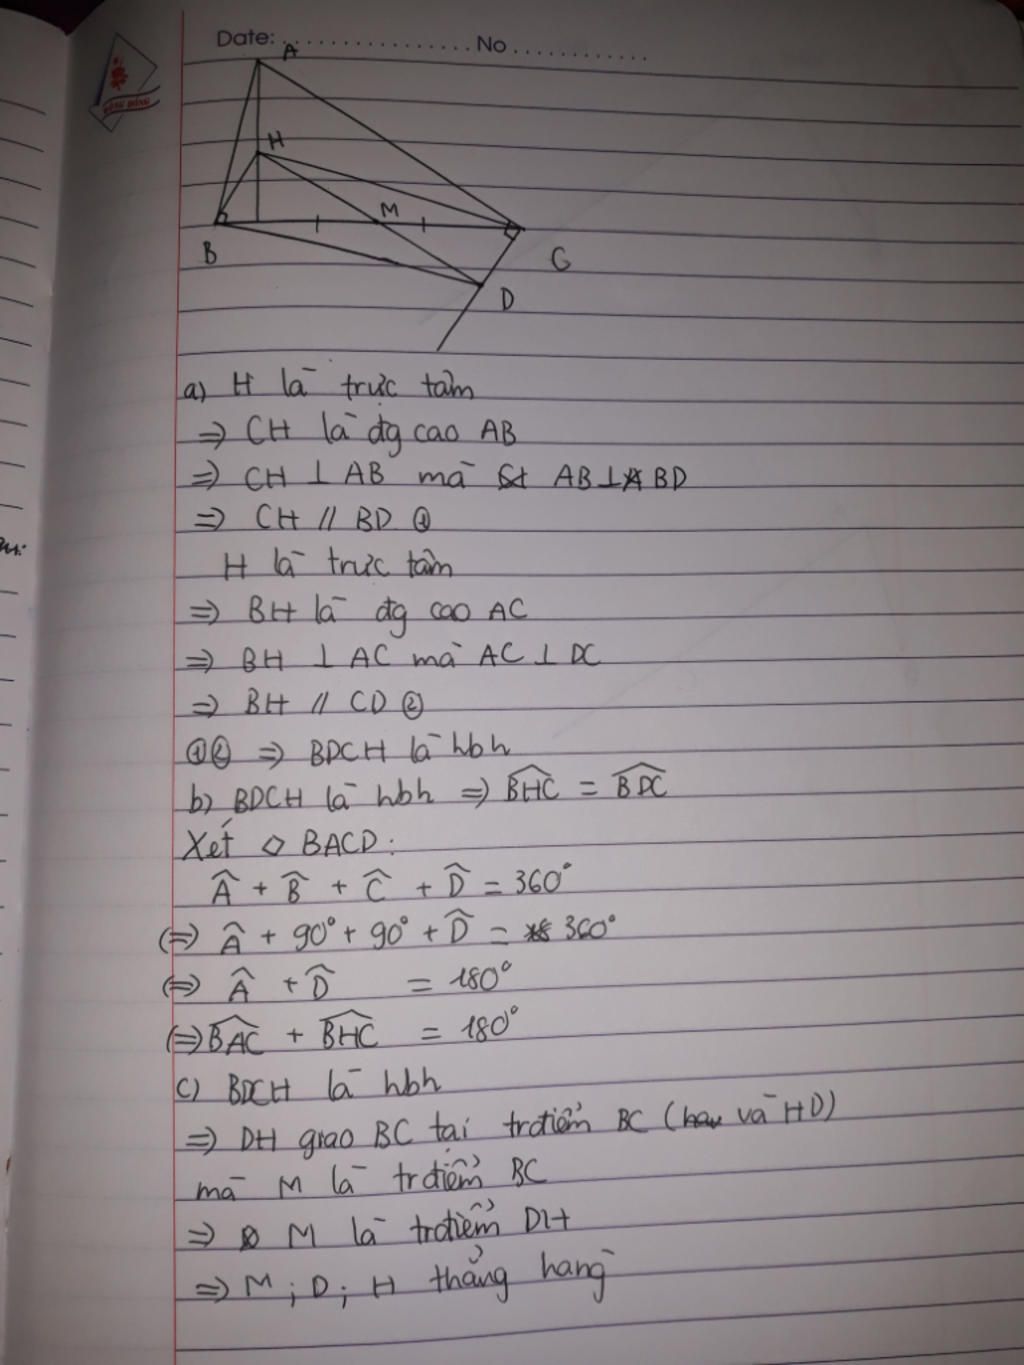 Date: ................ No ............
A
H
M
B
C
D
a) H là trực tâm
=> CH là đg cao AB
=> CH ⊥ AB mà AB ⊥ BD
=> CH // BD ①
H là trực tâm
=> BH là đg cao AC
=> BH ⊥ AC mà AC ⊥ DC
=> BH // CD ②
①② => BDCH là hbh
b) BDCH là hbh => \widehat{BHC} = \widehat{BDC}
Xét ◇ BACD:
\widehat{A} + \widehat{B} + \widehat{C} + \widehat{D} = 360°
(=) \widehat{A} + 90° + 90° + \widehat{D} = 360°
(=) \widehat{A} + \widehat{D} = 180°
(=) \widehat{BAC} + \widehat{BHC} = 180°
c) BDCH là hbh
=> DH giao BC tại trđiểm BC (và HD)
mà M là trđiểm BC
=> M là trđiểm DH
=> M; D; H thẳng hàng